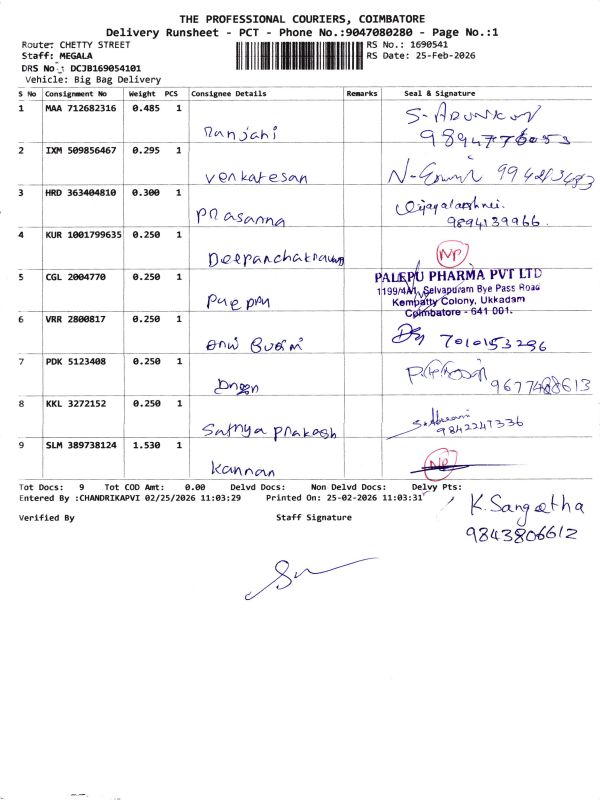 THE PROFESSIONAL COURIERS, COIMBATORE
Delivery Runsheet - PCT - Phone No.:9047080280 - Page No.:1
Route: CHETTY STREET
RS No.: 1690541
Staff: MEGALA
RS Date: 25-Feb-2026
DRS No.: DCJB169054101
Vehicle: Big Bag Delivery
S No Consignment No Weight PCS Consignee Details Remarks Seal & Signature
1 MAA 712682316 0.485 1
Ranjani
2 IXM 509856467 0.295 1
Venkatesan
3 HRD 363404810 0.300 1
Prasanna
9894139966.
4 KUR 1001799635 0.250 1
NP
5 CGL 2004770 0.250 1
PALEPU PHARMA PVT LTD
1199/4A1, Selvapuram Bye Pass Road
Kempatty Colony, Ukkadam
Coimbatore - 641 001.
6 VRR 2800817 0.250 1
7010153296
7 PDK 5123408 0.250 1
8 KKL 3272152 0.250 1
Sathya Prakash
9842247336
9 SLM 389738124 1.530 1
Kannan
NP
Tot Docs: 9 Tot COD Amt: 0.00 Delvd Docs: Non Delvd Docs: Delvy Pts:
Entered By :CHANDRIKAPVI 02/25/2026 11:03:29 Printed On: 25-02-2026 11:03:31
K. Sangeetha
9843806612
Verified By Staff Signature